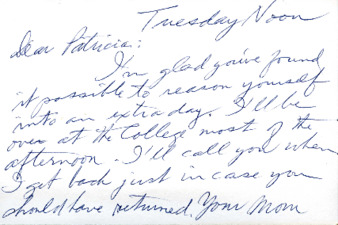 Tuesday Noon
Dear Patricia:
I'm glad you've found
it possible to reason yourself
into an extra day. I'll be
over at the College most of the
afternoon. I'll call you when
I get back just in case you
should have returned. Your Mom